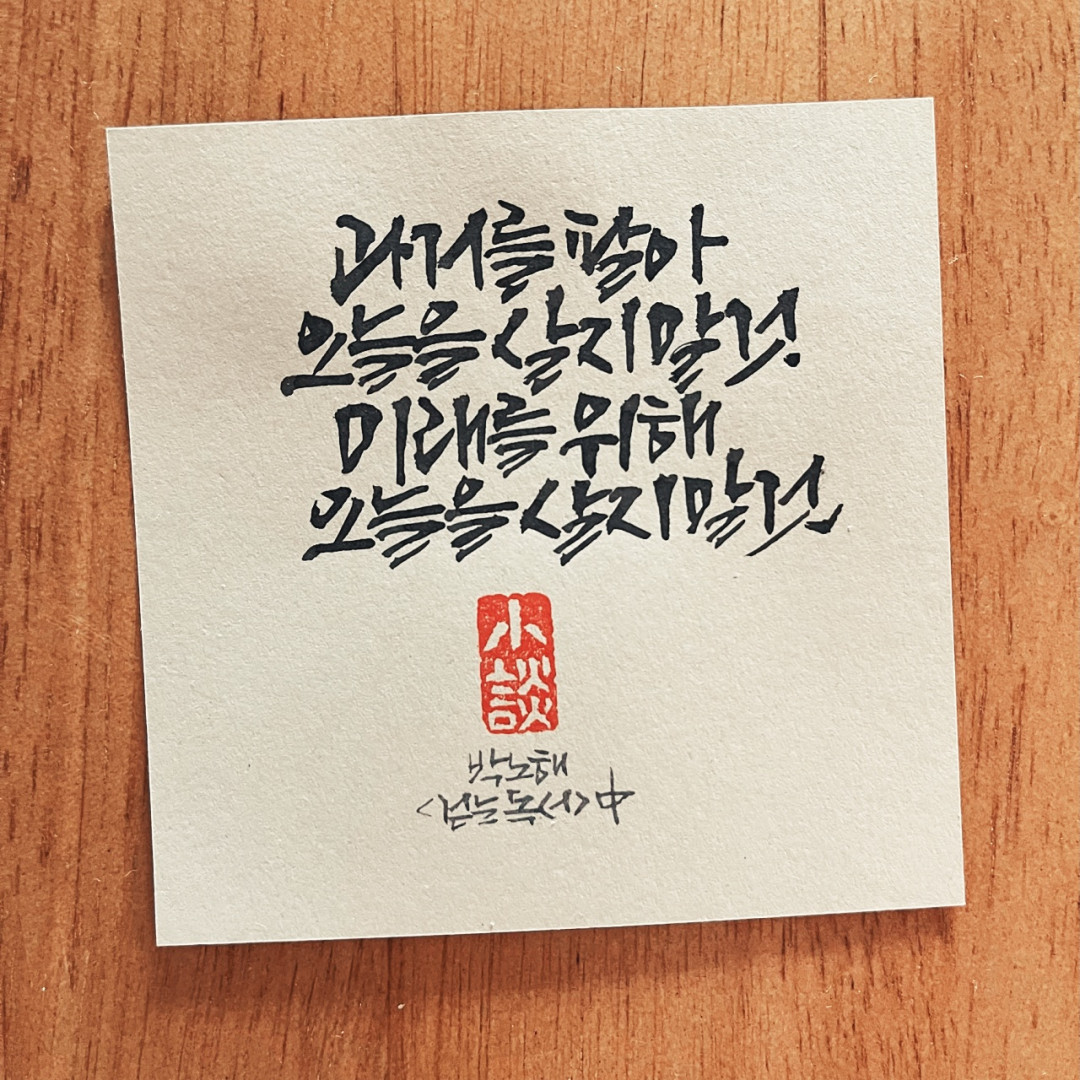 과거를 팔아
오늘을 살지 말 것!
미래를 위해
오늘을 살지 말 것
小談
박노해
<걷는 독서> 中